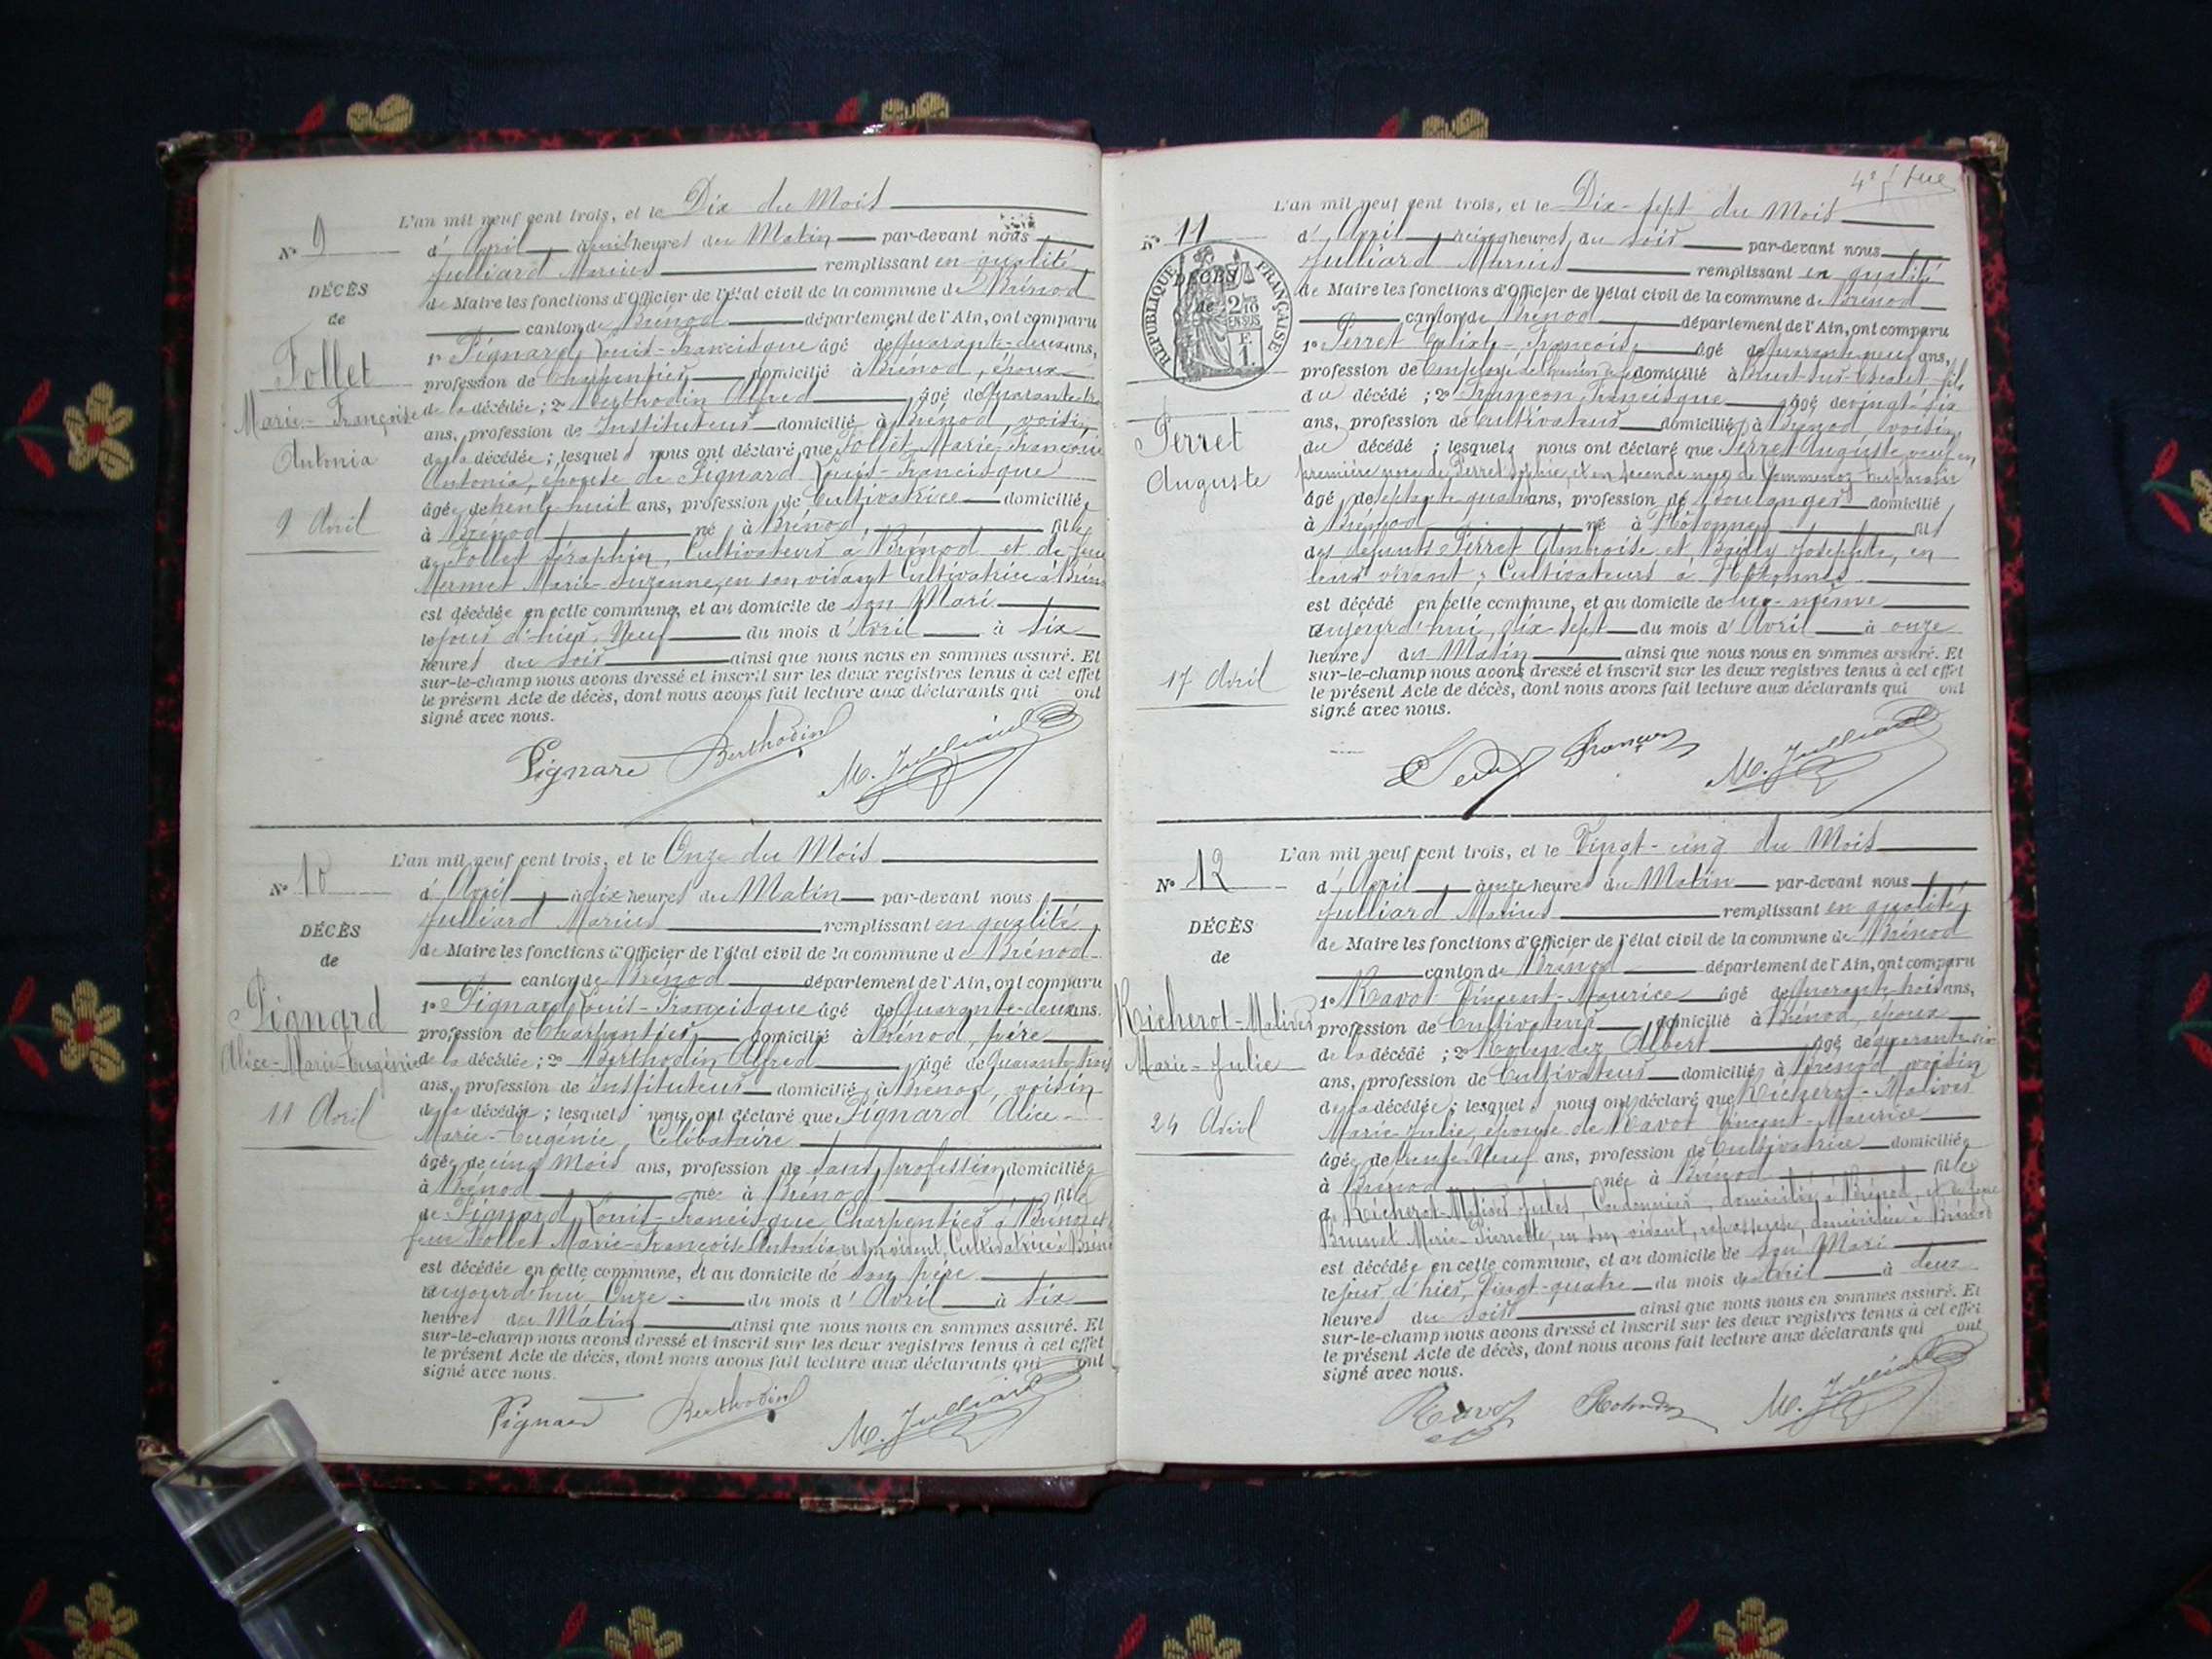 L'an mil neuf cent trois, et le Dix du Mois
N° 9
d'Avril à huit heures du Matin par-devant nous
Julliard Marius remplissant en qualité
DÉCÈS
de Maire les fonctions d'Officier de l'état civil de la commune de Brénod
de
canton de Brénod département de l'Ain, ont comparu
Follet
1° Pignard Louis-Francisque âgé de quarante-deux ans,
profession de Charpentier domicilié à Brénod, époux
Marie-Françoise
de la décédée; 2° Berthodin Alfred âgé de quarante
ans, profession de Instituteur domicilié à Brénod, voisin
Antonia
de la décédée; lesquels nous ont déclaré que Follet Marie-Françoise
Antonia, épouse de Pignard Louis-Francisque
âgée de trente huit ans, profession de Cultivatrice domiciliée
9 Avril
à Brénod née à Brénod, fille
de Follet Séraphin, Cultivateur à Brénod et de feue
Mermet Marie-Suzanne, en son vivant Cultivatrice à Brénod
est décédée en cette commune, et au domicile de son Mari
le jour d'hier, Neuf du mois d'Avril à six
heures du soir ainsi que nous nous en sommes assuré. Et
sur-le-champ nous avons dressé et inscrit sur les deux registres tenus à cet effet
le présent Acte de décès, dont nous avons fait lecture aux déclarants qui ont
signé avec nous.
Pignard Berthodin M. Julliard
L'an mil neuf cent trois, et le Onze du Mois
N° 10
d'Avril à dix heures du Matin par-devant nous
Julliard Marius remplissant en qualité
DÉCÈS
de Maire les fonctions d'Officier de l'état civil de la commune de Brénod
de
canton de Brénod département de l'Ain, ont comparu
Pignard
1° Pignard Louis-Francisque âgé de quarante-deux ans.
profession de Charpentier domicilié à Brénod, père
Alice-Marie-Eugénie
de la décédée; 2° Berthodin Alfred âgé de quarante-trois
ans, profession de Instituteur domicilié à Brénod, voisin
11 Avril
de la décédée; lesquels nous ont déclaré que Pignard Alice-
Marie-Eugénie, Célibataire
âgée de cinq Mois ans, profession de sans profession domiciliée
à Brénod née à Brénod fille
de Pignard Louis-Francisque Charpentier à Brénod et
feue Follet Marie-Françoise Antonia en son vivant, Cultivatrice à Brénod
est décédée en cette commune, et au domicile de son père
aujourd'hui Onze du mois d'Avril à six
heures du Matin ainsi que nous nous en sommes assuré. Et
sur-le-champ nous avons dressé et inscrit sur les deux registres tenus à cet effet
le présent Acte de décès, dont nous avons fait lecture aux déclarants qui ont
signé avec nous.
Pignard Berthodin M. Julliard
4e
L'an mil neuf cent trois, et le Dix-sept du Mois
N° 11
d'Avril à cinq heures du soir par-devant nous
Julliard Marius remplissant en qualité
RÉPUBLIQUE FRANÇAISE
DÉCÈS
2/10 EN SUS
F. 1.
de Maire les fonctions d'Officier de l'état civil de la commune de Brénod
de
canton de Brénod département de l'Ain, ont comparu
1° Perret Calixte-François âgé de quarante neuf ans,
profession de Employé de chemin de domicilié à fils
du décédé; 2° Françon Francisque âgé de vingt-six
Perret
ans, profession de Cultivateur domicilié à Brénod voisin,
du décédé; lesquels nous ont déclaré que Perret Auguste, veuf en
Auguste
première noce de Perret et en seconde noce de
âgé de soixante quatorze ans, profession de Boulanger domicilié
à Brénod né à Hotonnes fils
des défunts Perret Ambroise et Bailly Josephte, en
leur vivant, Cultivateurs à Hotonnes
est décédé en cette commune, et au domicile de lui-même
aujourd'hui, dix-sept du mois d'Avril à onze
heures du Matin ainsi que nous nous en sommes assuré. Et
17 Avril
sur-le-champ nous avons dressé et inscrit sur les deux registres tenus à cet effet
le présent Acte de décès, dont nous avons fait lecture aux déclarants qui ont
signé avec nous.
Françon M. Julliard
L'an mil neuf cent trois, et le Vingt-cinq du Mois
N° 12
d'Avril à onze heures du Matin par-devant nous
Julliard Marius remplissant en qualité
DÉCÈS
de Maire les fonctions d'Officier de l'état civil de la commune de Brénod
de
canton de Brénod département de l'Ain, ont comparu
Richerot-Malivet
1° Ravot Vincent-Maurice âgé de quarante-trois ans,
profession de Cultivateur domicilié à Brénod, époux
Marie-Julie
de la décédé; 2° Rolandez Albert âgé de quarante-six
ans, profession de Cultivateur domicilié à Brénod voisin
24 Avril
de la décédée; lesquels nous ont déclaré que Richerot-Malivet
Marie-Julie, épouse de Ravot Vincent-Maurice
âgée de trente-Neuf ans, profession de Cultivatrice domiciliée
à Brénod née à Brénod fille
de Richerot-Malivet Jules, Cordonnier, domicilié à Brénod, et de feue
Brunet Marie-Pierrette, en son vivant, repasseuse, domiciliée à Brénod
est décédée en cette commune, et au domicile de son Mari
le jour d'hier, Vingt-quatre du mois de Avril à deux
heures du soir ainsi que nous nous en sommes assuré. Et
sur-le-champ nous avons dressé et inscrit sur les deux registres tenus à cet effet
le présent Acte de décès, dont nous avons fait lecture aux déclarants qui ont
signé avec nous.
Ravot Rolandez M. Julliard